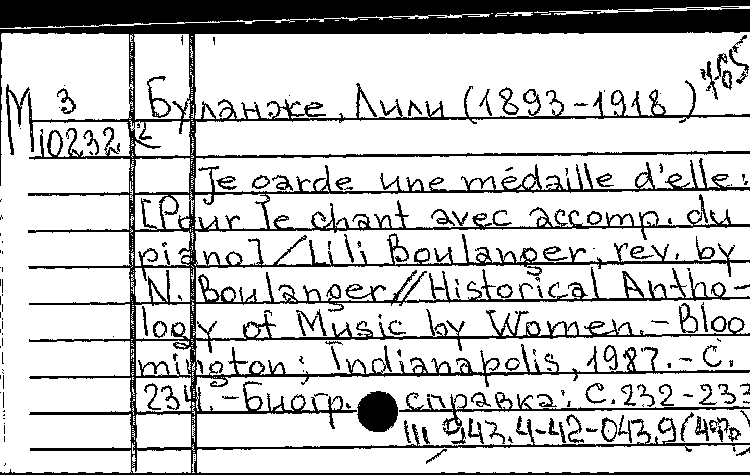 765
М 3 Буланже, Лили (1893-1918)
10232 2
Je garde une médaille d'elle:
[Pour le chant avec accomp. du
piano] / Lili Boulanger; rev. by
N. Boulanger // Historical Antho-
logy of Music by Women. - Bloo
mington; Indianapolis, 1987. - С.
234. - Биогр. справка: С. 232-233
Ш 943.4-42-043.9